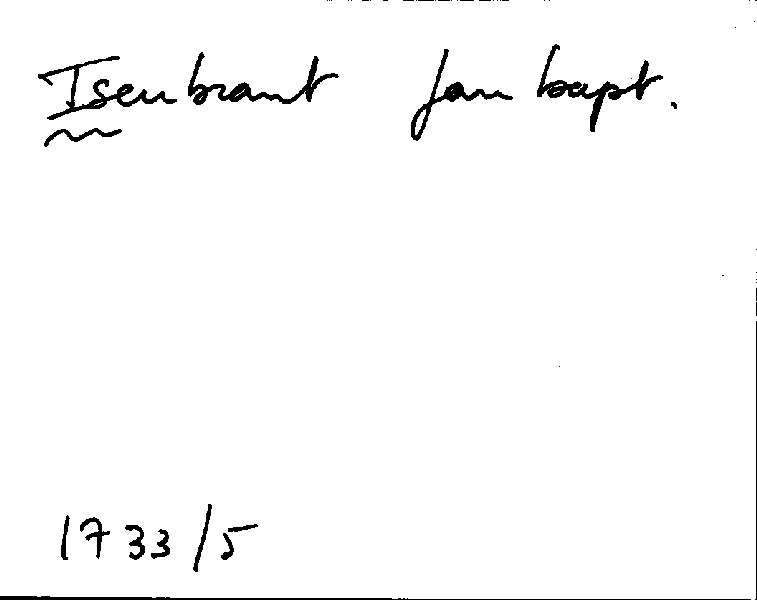 Isenbrant Jan bapt.
1733/5